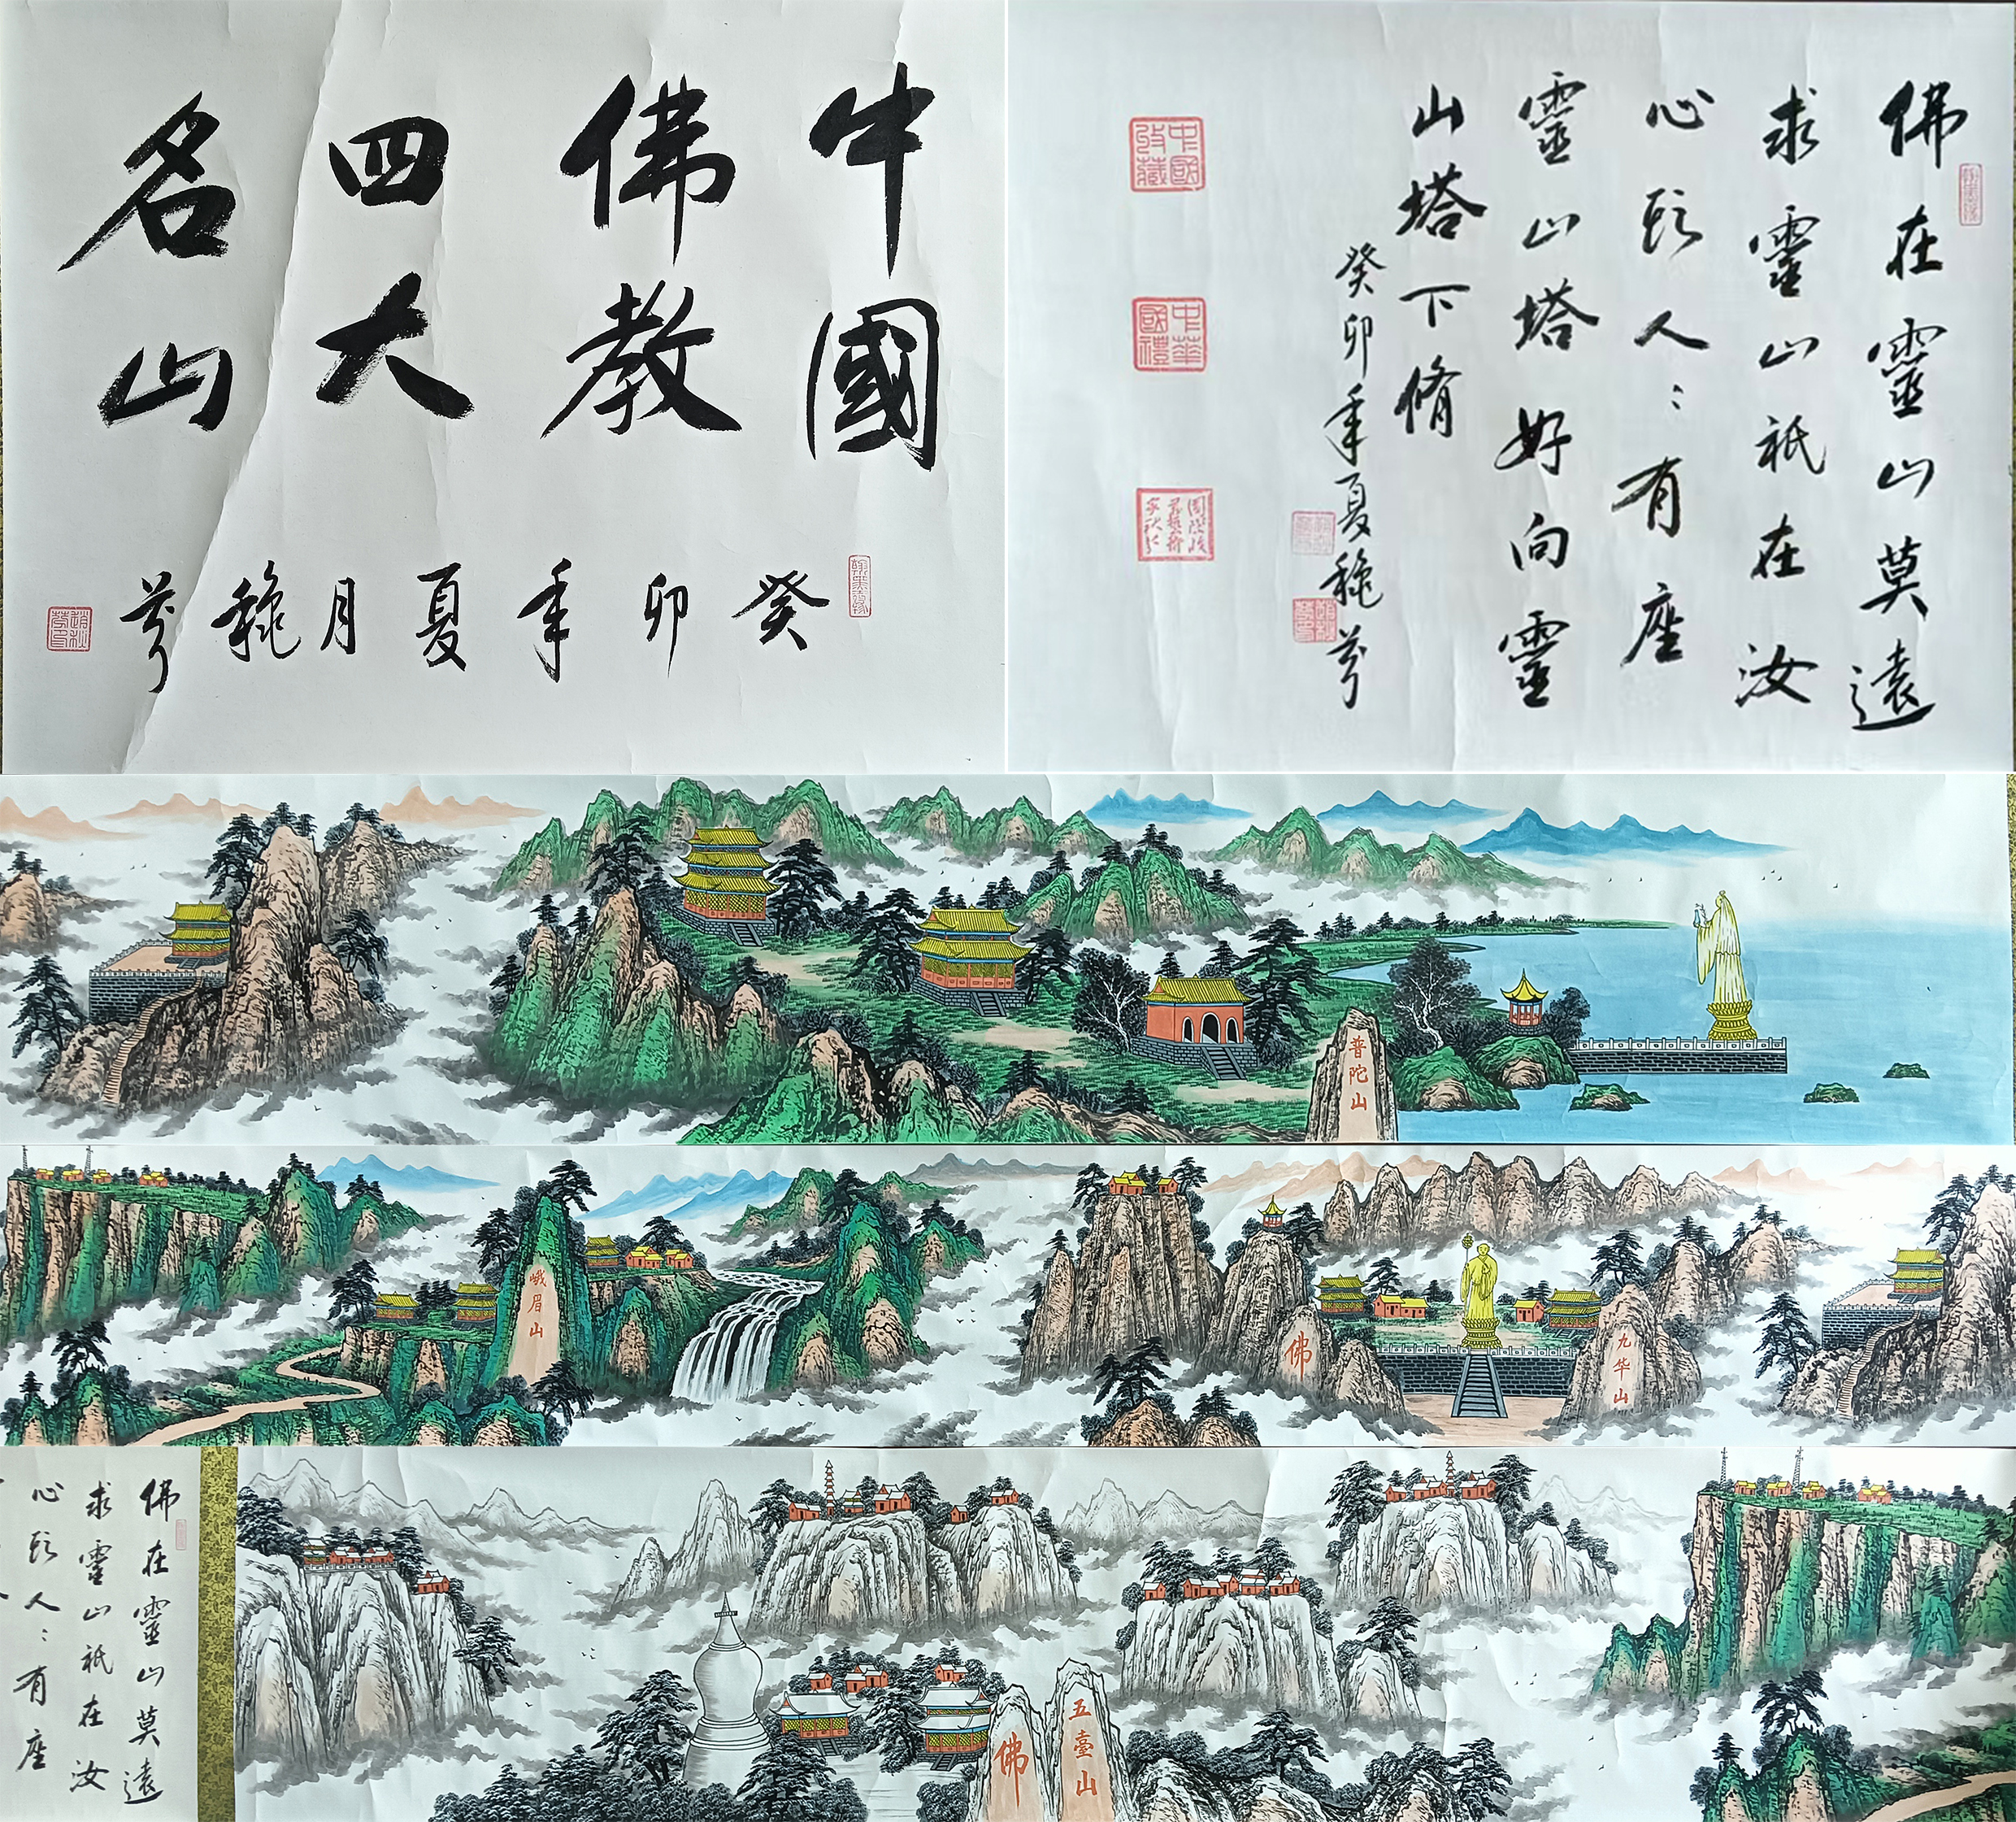 中國
佛教
四大
名山
癸卯年夏月穐芳
佛在靈山莫遠
求靈山祇在汝
心頭人〻有座
靈山塔好向靈
山塔下脩
癸卯年夏穐芳
中國
收藏
中華
國禮
普陀山
峨眉山
佛
九华山
佛在靈山莫遠
求靈山祇在汝
心頭人〻有座
佛
五臺山